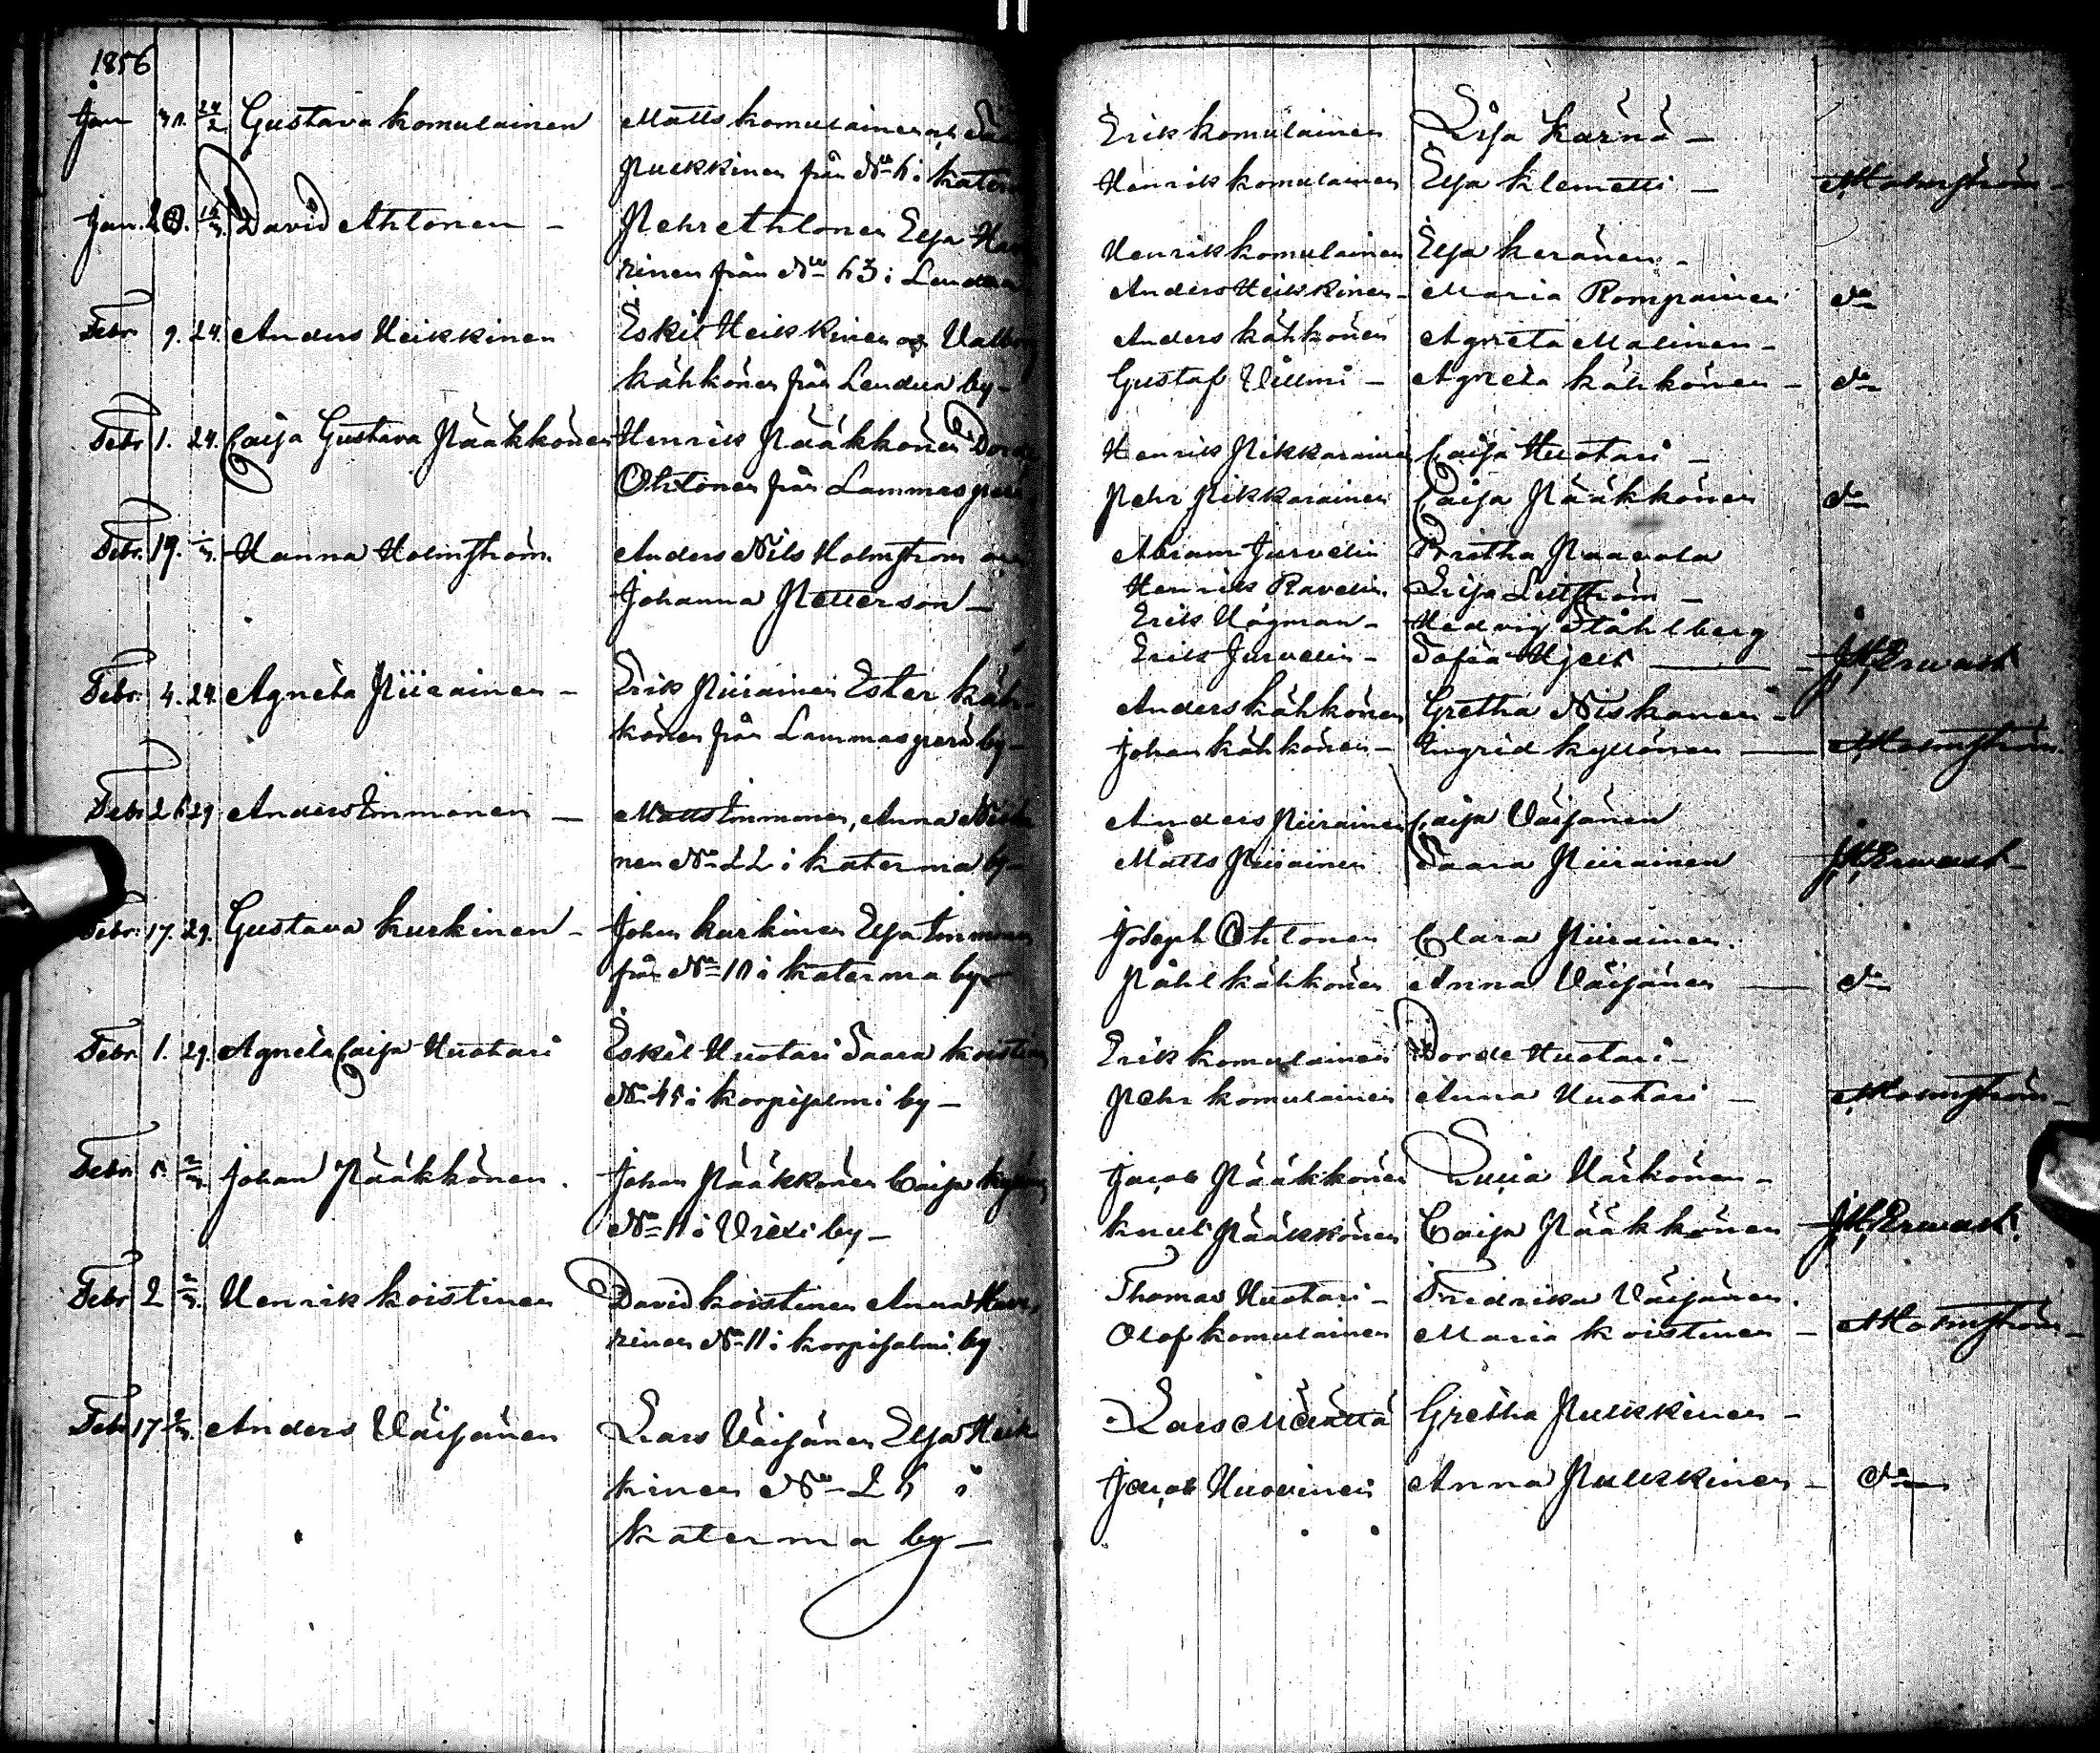 1856
Jan 24/2 Gustava Komulainen Matts Komulainen
Pulkkinen från No 6 i
Erik Komulainen Lisa Kärnä -
Henrik Komulainen Elsa Klemetti - Holmström -
Jan. David Ahtonen - Pehr Ahtonen Elsa
kinen från No 63 i
Henrik Komulainen Elsa Keränen -
Anders Heikkinen - Maria Rompainen do
Febr 9. 24. Anders Heikkinen Eskil Heikkinen
Kähkönen från Lendua by -
Anders Kähkönen Agneta Malinen -
Gustaf Villmi - Agneta Kähkönen - do
Febr 1. 24. Caija Gustava Pääkkönen Henrik Pääkkönen
Ohtonen från
Henrik Pikkarainen Caija Huotari -
Pehr Pikkarainen Caija Pääkkönen do
Febr. 19. Hanna Holmström. Anders Nils Holmström
Johanna Petterson -
Abram Jurvelin Britha Paavola
Henrik Ravelin.
Erik Högman - Hedvig Ståhlberg
Erik Jurvelin - Sofia Hjelt - J H Erwast
Febr. 4. 24 Agneta Piirainen - Erik Piirainen Ester Käh-
könen från Lammasperä by -
Anders Kähkönen Gretha Niskanen -
Johan Kähkönen - Ingrid Kyllönen - Holmström.
Febr 26 29 Anders Immonen - Matts Immonen, Anna
nen No 22 i Katerma by -
Anders Piirainen Caija Väisänen
Matts Piirainen Saara Piirainen J H Erwast -
Febr: 17. 29. Gustava Kurkinen - Johan Kurkinen Elsa Immonen
från No 10 i Katerma by -
Joseph Ohtonen Clara Piirainen.
Påhl Kähkönen Anna Väisänen - do
Febr. 1. 29. Agneta Caija Huotari Eskil Huotari Saara
No 45 i Korpisalmi by -
Erik Komulainen Borde Huotari -
Pehr Komulainen Anna Huotari - Holmström -
Febr 5. 2/3. Johan Pääkkönen. Johan Pääkkönen Caija
No 11 i Viexi by -
Jacob Pääkkönen Härkönen -
Knut Pääkkönen Caija Pääkkönen J H Erwast.
Febr 2 2/3. Henrik Koistinen David Koistinen Anna
kinen No 11 i Korpisalmi by
Thomas Huotari - Fredrika Väisänen.
Olof Komulainen Maria Koistinen - Holmström -
Febr 17 Anders Väisänen Lars Väisänen Elsa Heik
kinen No 26 i
Katerma by -
Lars Määttä Gretha Pulkkinen -
Jacob Huovinen Anna Pulkkinen - do